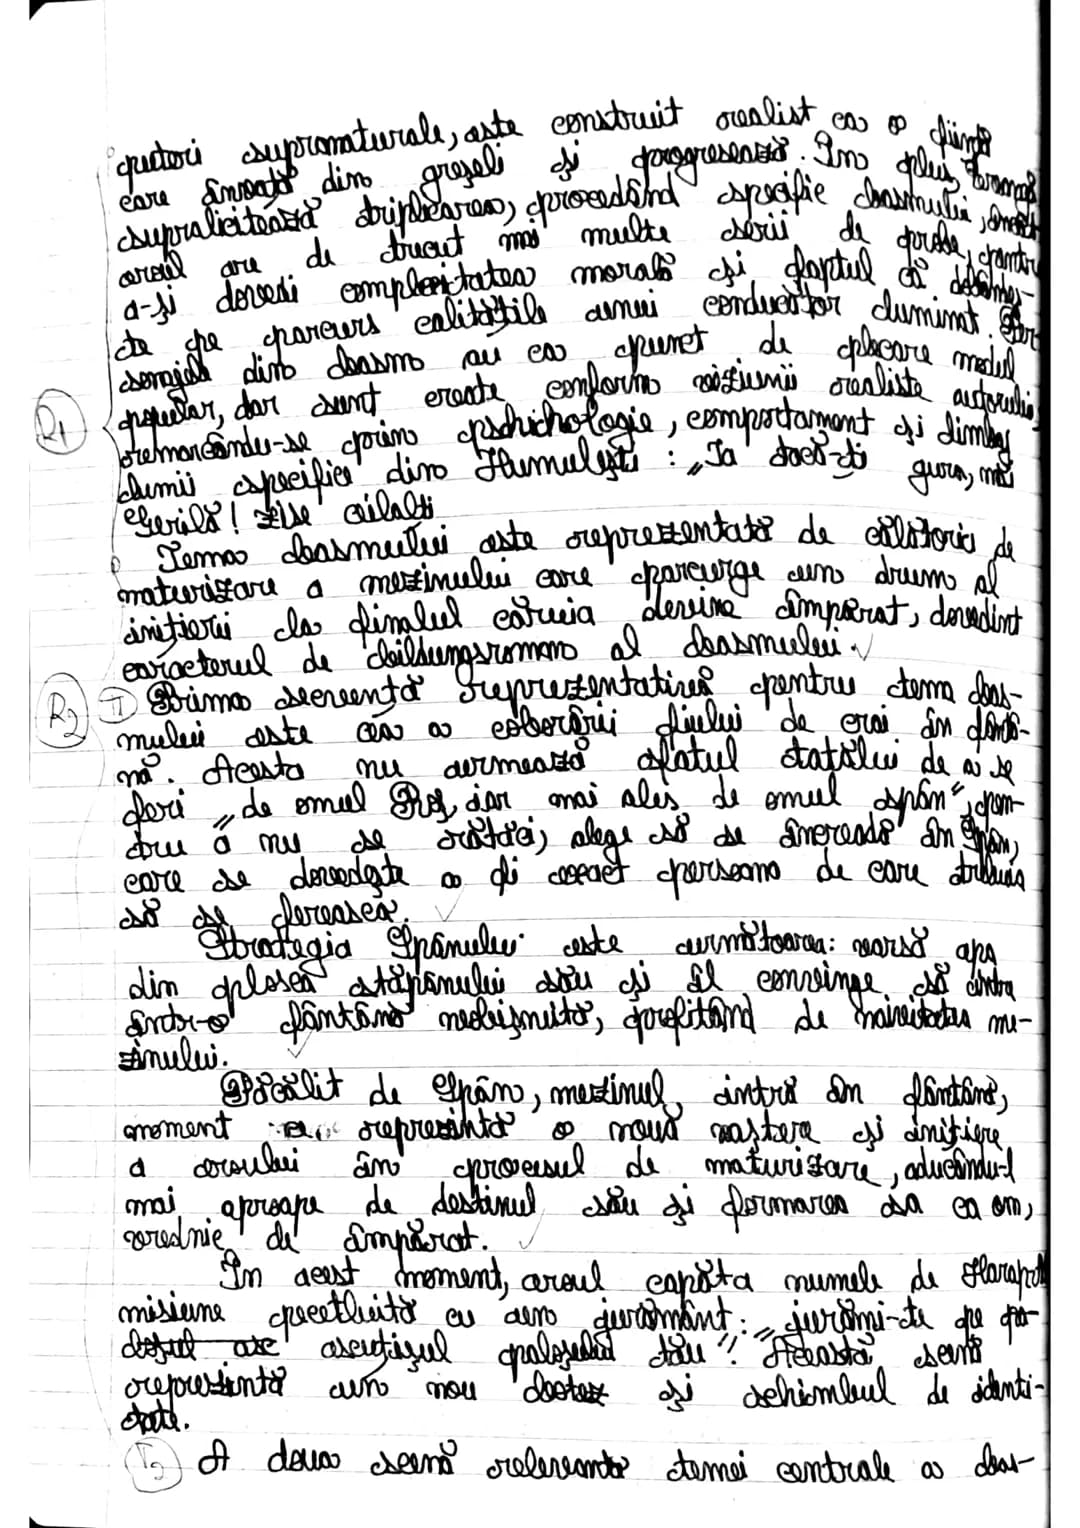 puteri supranaturale, este construit realist ca o ființă
care învață din greșeli și progresează. În plus, Creangă
supralicitează triplicarea, procedând specific basmului, întrucât
eroul are de trecut mai multe serii de probe, pentru
a-și dovedi complexitatea morală și faptul că dobândeș-
te pe parcurs calitățile unui conducător luminat. Per-
sonajele din basm au ca punct de plecare modul
R1 popular, dar sunt create conform viziunii realiste autorului,
remarcându-se prin pshichologie, comportament și limbaj
lumii specifice din Humulești: „Ia tacă-ți gura, măi
Gerilă! zise ceilalți
Tema basmului este reprezentată de călătoria de
maturizare a mezinului care parcurge un drum al
inițierii la finalul căruia devine împărat, dovedint
caracterul de bildungsroman al basmului.
R2 T1 Prima secvență reprezentativă pentru tema bas-
mului este cea a coborârii fiului de crai în fântâ-
nă. Acesta nu urmează sfatul tatălui de a se
feri „de omul Roș, iar mai ales de omul spân”, pen-
tru a nu se rătăci, alege să se încreadă în Spân,
care se dovedește a fi exact persoana de care trebuia
să se ferească.
Strategia Spânului este următoarea: varsă apa
din plosca stăpânului său și îl convinge să intre
într-o fântână neobișnuită, profitând de naivitatea me-
zinului.
Păcălit de Spân, mezinul intră în fântână,
moment reprezintă o nouă naștere și inițiere
a eroului în procesul de maturizare, aducându-l
mai aproape de destinul său și formarea sa ca om,
vrednic de împărat.
În acest moment, eroul capătă numele de Harap
misiune pecetluită cu un jurământ: „jurămi-te pe pa-
loșul asc ascuțișul paloșului tău”. Această scenă
reprezintă un nou botez și schimbul de identi-
tate.
T2 A doua scenă relevantă temei centrale a bas-